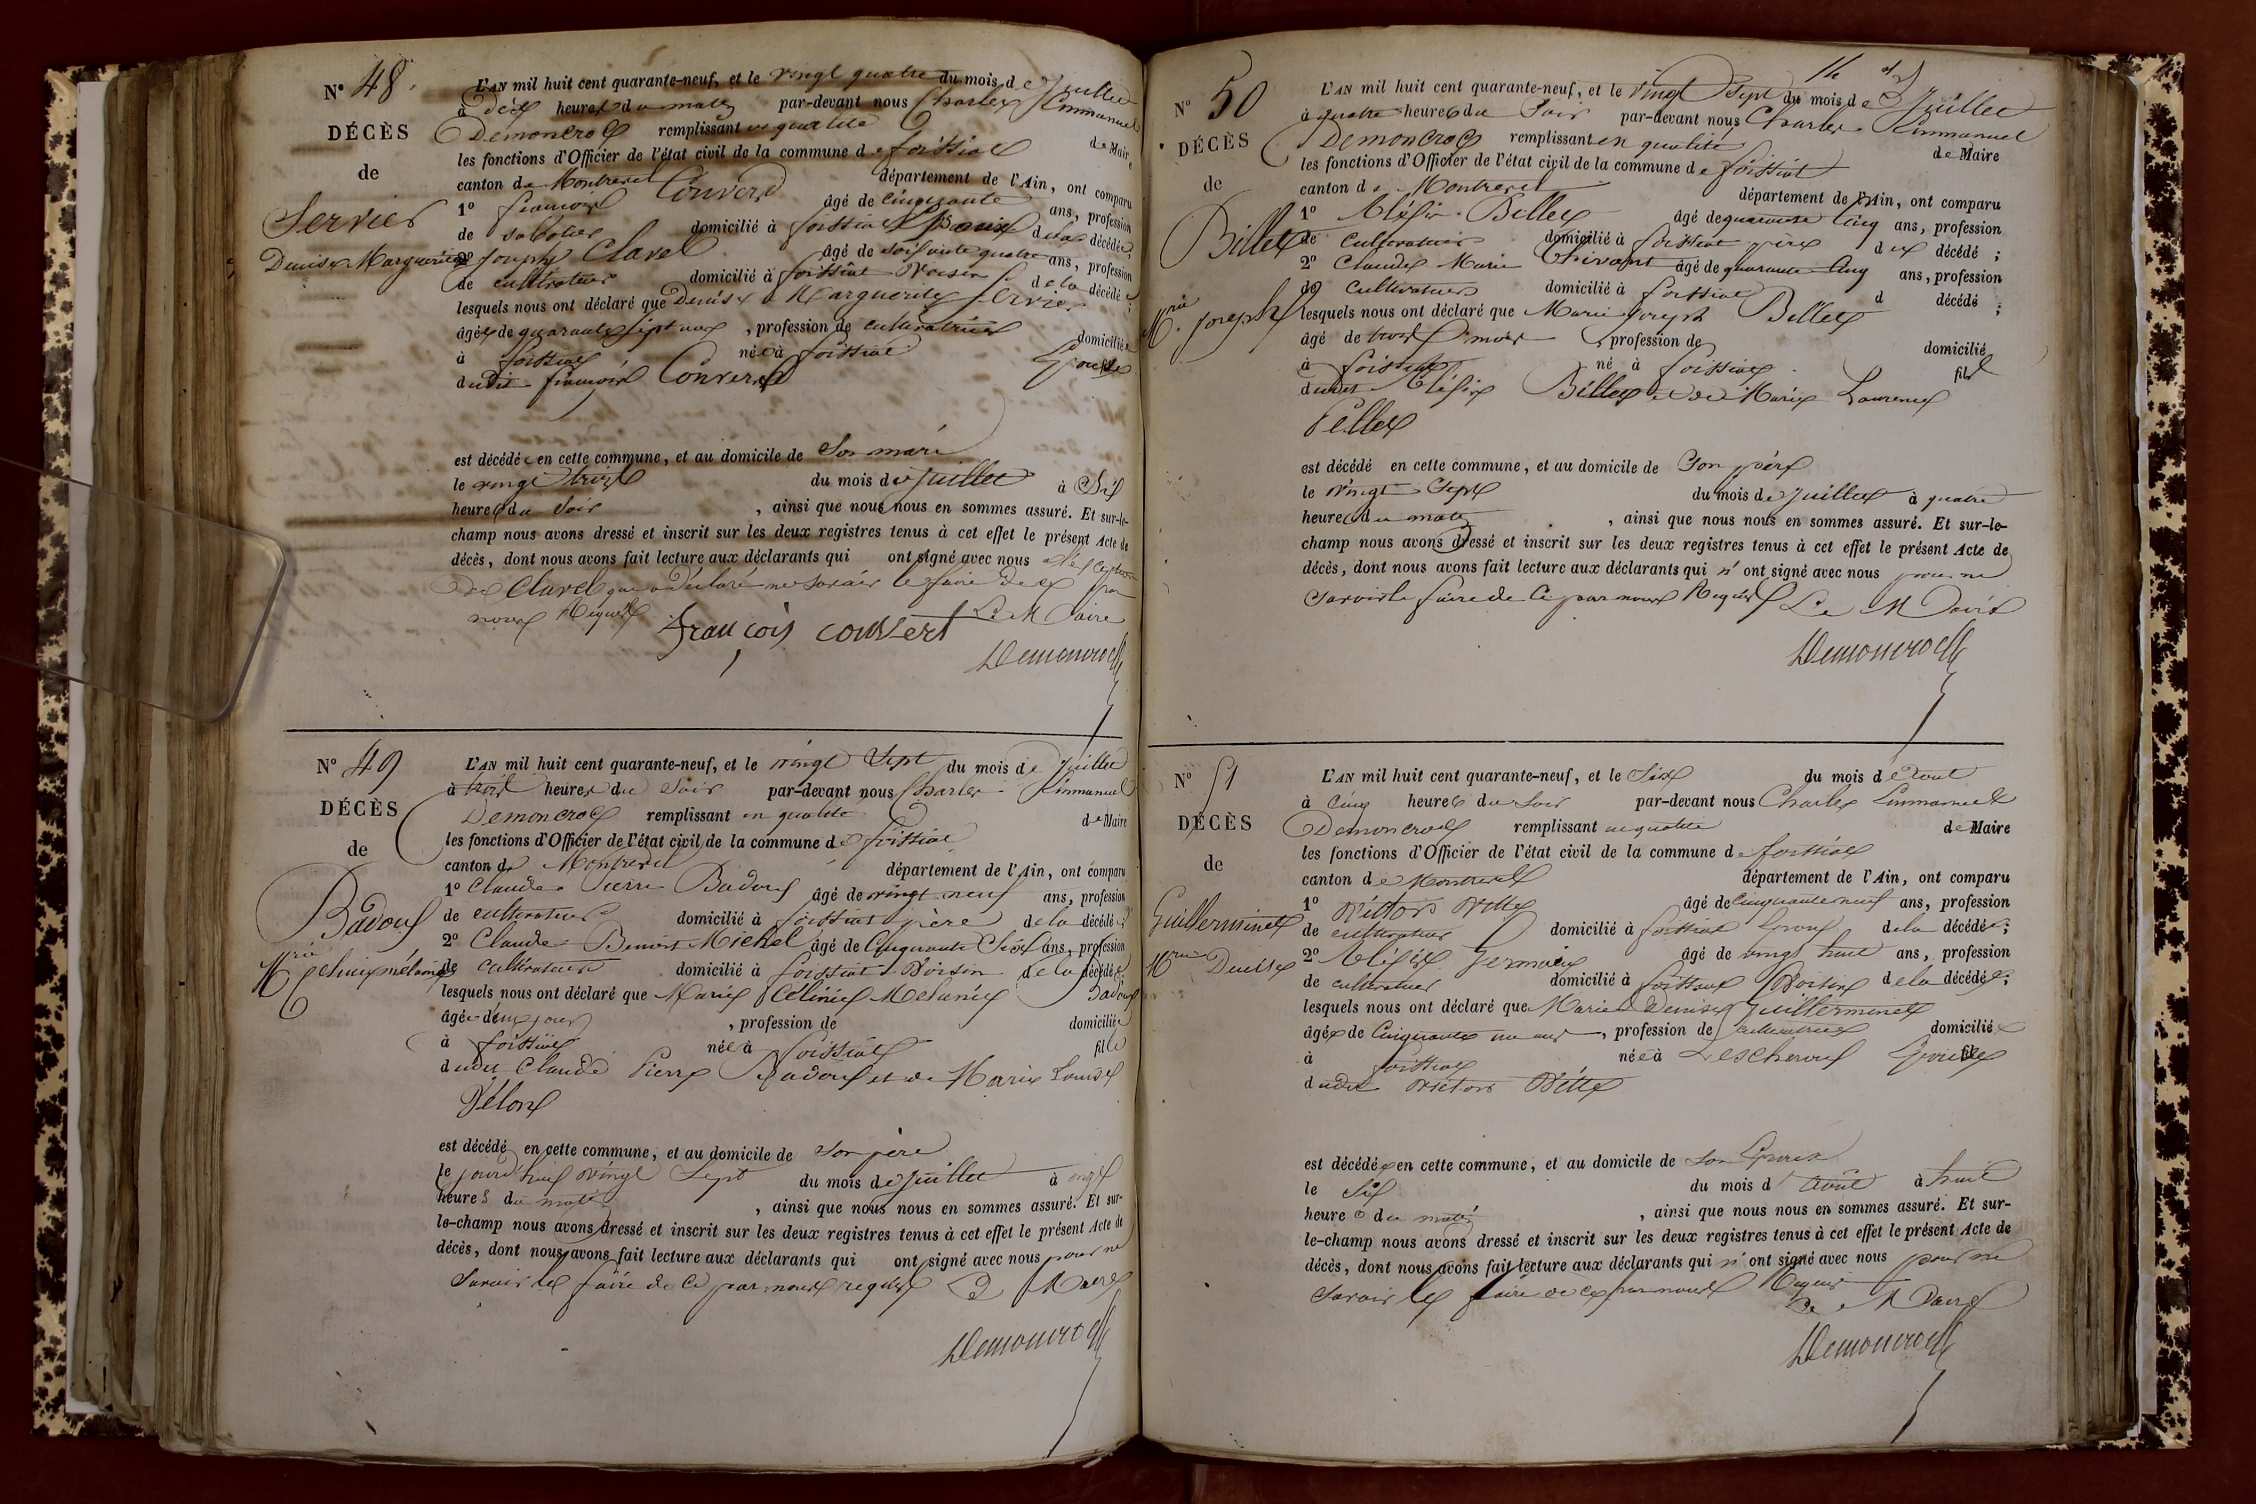 N° 48.
DÉCÈS
de
Servier
Denise Marguerite
L'AN mil huit cent quarante-neuf, et le vingt quatre du mois de Juillet
à dix heures du matin par-devant nous Charles Emmanuel
Demoncroc remplissant en qualité de Maire
les fonctions d'Officier de l'état civil de la commune de foissiat
canton de Montrevel département de l'Ain, ont comparu
1° françois Convert âgé de cinquante ans, profession
de sabotier domicilié à foissiat Epoux de la décédée;
2° Joseph Clavel âgé de soixante quatre ans, profession
de cultivateur domicilié à foissiat Voisin de la décédée;
lesquels nous ont déclaré que Denise Marguerite Servier
âgée de quarante sept ans, profession de cultivatrice domiciliée
à foissiat née à foissiat Epouse
dudit françois Convert
est décédée en cette commune, et au domicile de Son mari
le vingt trois du mois de Juillet à Six
heures du Soir, ainsi que nous nous en sommes assuré. Et sur-le-
champ nous avons dressé et inscrit sur les deux registres tenus à cet effet le présent Acte de
décès, dont nous avons fait lecture aux déclarants qui ont signé avec nous à l'exception
de Clavel qui a déclaré ne savoir le faire de ce par
nous Requis Le Maire
françois couvert
Demoncroc
N° 49
DÉCÈS
de
Badoux
Mrie Celinie mélanie
L'AN mil huit cent quarante-neuf, et le vingt Sept du mois de Juillet
à trois heures du Soir par-devant nous Charles Emmanuel
Demoncroc remplissant en qualité de Maire
les fonctions d'Officier de l'état civil de la commune de foissiat
canton de Montrevel département de l'Ain, ont comparu
1° Claude Pierre Badoux âgé de vingt neuf ans, profession
de cultivateur domicilié à foissiat père de la décédée;
2° Claude Benoit Michel âgé de Cinquante Six ans, profession
de cultivateur domicilié à foissiat Voisin de la décédée;
lesquels nous ont déclaré que Marie Célinie Melanie Badoux
âgée de jours, profession de domiciliée
à foissiat née à foissiat fille
dudit Claude Pierre Badoux et de Marie Louise
Pélon
est décédé en cette commune, et au domicile de Son père
le jourd'hui vingt Sept du mois de Juillet à onze
heures du matin, ainsi que nous nous en sommes assuré. Et sur-
le-champ nous avons dressé et inscrit sur les deux registres tenus à cet effet le présent Acte de
décès, dont nous avons fait lecture aux déclarants qui ont signé avec nous pour ne
Savoir le faire de ce par nous requis Le Maire
Demoncroc
N° 50
DÉCÈS
de
Billet
Mrie Joseph
L'AN mil huit cent quarante-neuf, et le Vingt Sept du mois de Juillet
à quatre heures du Soir par-devant nous Charles Emmanuel
Demoncroc remplissant en qualité de Maire
les fonctions d'Officier de l'état civil de la commune de foissiat
canton de Montrevel département de l'Ain, ont comparu
1° Aléxis Billet âgé de quarante Cinq ans, profession
de Cultivateur domicilié à foissiat père du décédé;
2° Claude Marie âgé de quarante Cinq ans, profession
de Cultivateur domicilié à foissiat d décédé;
lesquels nous ont déclaré que Marie Joseph Billet
âgé de trois mois profession de domicilié
à foissiat né à foissiat fils
dudit Aléxis Billet et de Marie Laurence
Pellet
est décédé en cette commune, et au domicile de Son père
le Vingt Sept du mois de Juillet à quatre
heures du matin, ainsi que nous nous en sommes assuré. Et sur-le-
champ nous avons dressé et inscrit sur les deux registres tenus à cet effet le présent Acte de
décès, dont nous avons fait lecture aux déclarants qui n'ont signé avec nous pour ne
Savoir le faire de Ce par nous Requis Le Maire
Demoncroc
N° 51
DÉCÈS
de
Guillerminet
Mrie Denise
L'AN mil huit cent quarante-neuf, et le Six du mois d'Aout
à cinq heures du Soir par-devant nous Charles Emmanuel
Demoncroc remplissant en qualité de Maire
les fonctions d'Officier de l'état civil de la commune de foissiat
canton de Montrevel département de l'Ain, ont comparu
1° Victors Vitte âgé de Cinquante neuf ans, profession
de cultivateur domicilié à foissiat Epoux de la décédée;
2° Aléxis Germain âgé de vingt huit ans, profession
de cultivateur domicilié à foissiat Voisin de la décédée;
lesquels nous ont déclaré que Marie Denise Guillerminet
âgée de Cinquante un ans, profession de cultivatrice domiciliée
à foissiat née à Lescheroux Epouse
dudit Victors Vitte
est décédée en cette commune, et au domicile de Son Epoux
le Six du mois d'Août à huit
heures du matin, ainsi que nous nous en sommes assuré. Et sur-
le-champ nous avons dressé et inscrit sur les deux registres tenus à cet effet le présent Acte de
décès, dont nous avons fait lecture aux déclarants qui n'ont signé avec nous pour ne
Savoir le faire de ce par nous Requis
Le Maire
Demoncroc